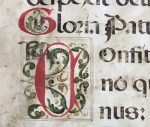 Gloria Patr
Confite
nō qu
nus: